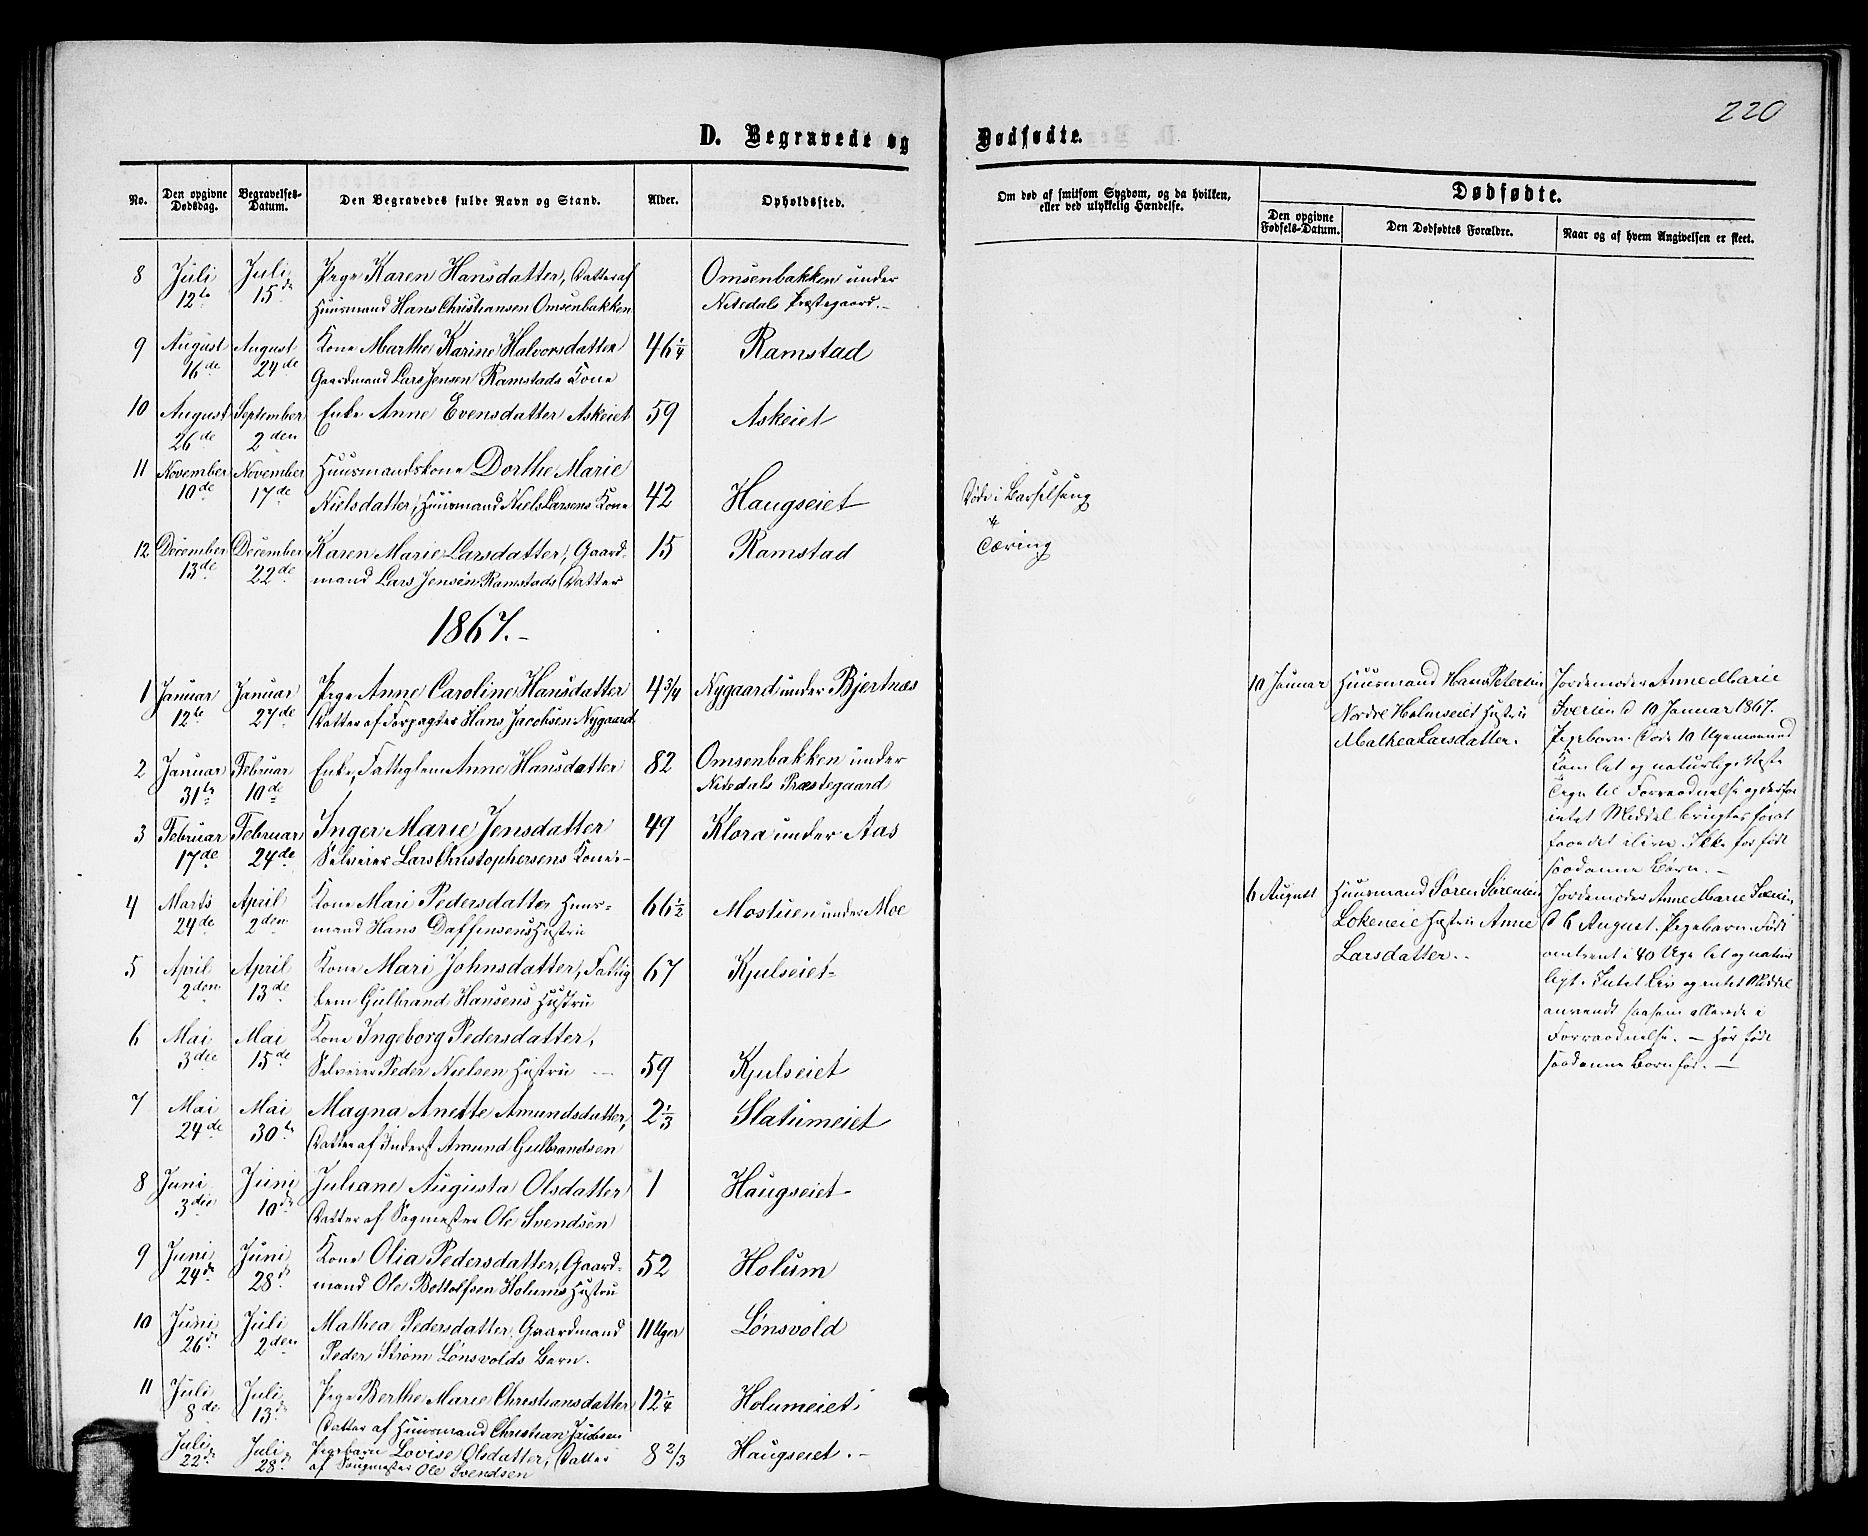 220
D. Begravede og Dødfødte.
No.
Den opgivne Dødsdag.
Begravelses-Datum.
Den Begravedes fulde Navn og Stand.
Alder.
Opholdssted.
Om død af smitsom Sygdom, og da hvilken,
eller ved ulykkelig Hændelse.
Dødfødte.
Den opgivne Fødsels-Datum.
Den Dødfødtes Forældre.
Naar og af hvem Angivelsen er skeet.
8 Juli Juli Pige Karen Hansdatter, Datter af Omsenbakken under
12te 15de Huusmand Hans Christiansen Omsenbakken Nitedals Præstegaard.-
9 August August Kone Marthe Karine Halvorsdatter 46 1/4 Ramstad
16de 24de Gaardmand Lars Jensen Ramstads Kone
10 August September Enke Anne Evensdatter Askeiet 59 Askeiet
26de 2den
11 November November Huusmandskone Dorthe Marie
10de 17de Nielsdatter, Huusmand Niels Larsens Kone 42 Haugseiet Døde i Barselseng
12 December December Karen Marie Larsdatter, Gaard- 15 Ramstad Tæring
13de 22de mand Lars Jensen Ramstads Datter
1867.-
1 Januar Januar Pige Anne Caroline Hansdatter 4 3/4 Nygaard under Bjertnæs
12te 27de Datter af Forpagter Hans Jacobsen Nygaard
2 Januar Februar Enke, Fattiglem Anne Hansdatter 82 Omsenbakken under
31te 10de Nitedals Præstegaard
3 Februar Februar Inger Marie Jensdatter 49 Klora under Aas
17de 24de Selveier Lars Christophersens Kone.-
4 Marts April Kone Mari Pedersdatter Huus- 66 1/2 Mostuen under Moe
24de 2den mand Hans Daffinsens Hustru
5 April April Kone Mari Johnsdatter, Fattig 67 Kjulseiet-
2den 13de lem Gulbrand Hansens Hustru
6 Mai Mai Kone Ingeborg Pedersdatter,
3die 15de Selveier Peder Nielsen Hustru 59 Kjulseiet
7 Mai Mai Magna Anette Amundsdatter, 2 1/3 Slatumeiet
24de 30te Datter af Inderst Amund Gulbrandsen
8 Juni Juni Juliane Augusta Olsdatter 1 Haugseiet-
3die 10de Datter af Sagmester Ole Svendsen
9 Juni Juni Kone Olia Pedersdatter, Gaard- 52 Holum
24de 28de mand Ole Bottolfsen Holums Hustru
10 Juni Juli Mathea Pedersdatter, Gaardmand 11 Uger Lønsvold
26de 2den Peder Strøm Lønsvolds Barn.
11 Juli Juli Pige Berthe Marie Christiansdatter 12 1/4 Holumeiet
8de 13de Datter af Huusmand Christian
Juli Juli Pigebarn Lovise Olsdatter, Datter 8 2/3 Haugseiet.-
22de 28de af Saugmester Ole Svendsen
10 Januar Huusmand Hans Petersen
Nordre Holmseiet Hustru
Mathea Larsdatter.
Jordemoder Anne Marie
Iversen d 19 Januar 1867.
Pigebarn.
let og naturlig.
Tegn til Forraadnelse og derfor
intet Middel brugtes først
faae det ilive. Ikke før født
saadanne Børn.-
6 August Huusmand Søren Sørensen
Løkeneie Hustru Anne
Larsdatter.-
Jordemoder Anne Marie
d 6 August. Pigebarn. Født
omtrent i 40 Uge let og natur
ligt. Intet Liv og intet Middel
anvendt saasom allerede i
Forraadnelse.- Har født
saadanne Børn før.-